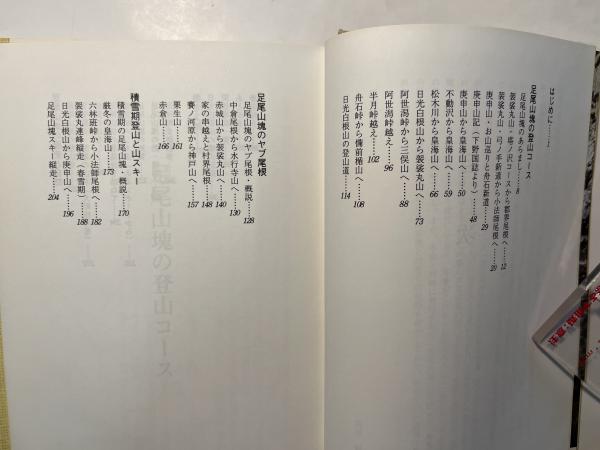 はじめに……1
足尾山塊の登山コース
足尾山塊のあらまし……8
袈裟丸山・塔ノ沢コースから郡界尾根へ…12
袈裟丸山・弓ノ手新道から小法師尾根へ…20
庚申山・お山巡りと舟石新道……29
庚申山記（下野国誌より）……48
庚申山から皇海山へ……50
不動沢から皇海山へ……59
松木川から皇海山へ……66
日光白根山から袈裟丸山へ……73
阿世潟峠から三俣山へ……88
阿世潟峠越え……96
半月峠越え……102
舟石峠から備前楯山へ……108
日光白根山の登山道……114
足尾山塊のヤブ尾根
足尾山塊のヤブ尾根・概説……128
中倉尾根から水行寺山へ……130
赤城山から袈裟丸山へ……140
家の串越えと村界尾根……148
賽ノ河原から神戸山へ……157
栗生山……161
赤倉山……166
積雪期登山と山スキー
積雪期の足尾山塊・概説……170
厳冬の皇海山……173
六林班峠から小法師尾根へ……182
袈裟丸連峰縦走（春雪期）……188
日光白根山から庚申山へ……196
足尾山塊スキー縦走……204